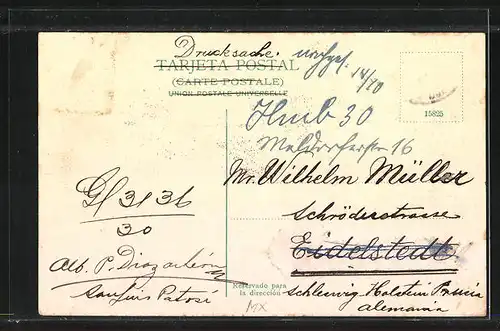 Drucksache. nachges.
TARJETA POSTAL 14/10
(CARTE POSTALE)
UNION POSTALE UNIVERSELLE
15825
Hmb 30
Meldorferstr 16
Mr. Wilhelm Müller
Schröderstrasse
Eidelstedt
Schleswig Holstein Prusia
Alemania
Gl 3136
30
Alb. P.
San Luis Potosí
Reservado para
la dirección
MX